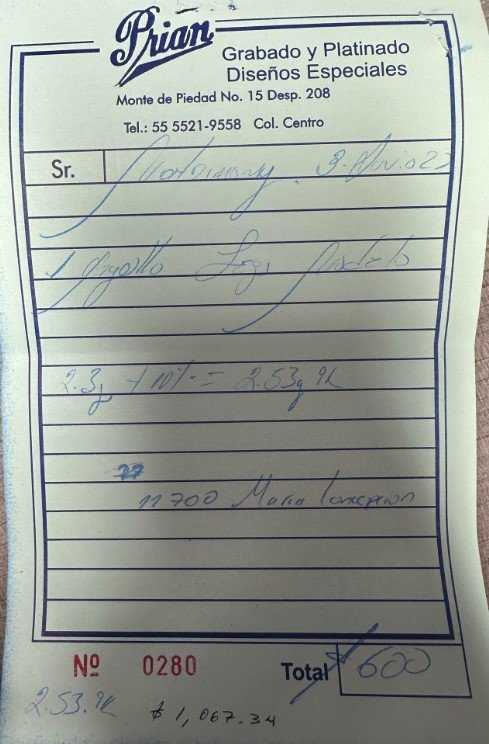 Prian
Grabado y Platinado
Diseños Especiales
Monte de Piedad No. 15 Desp. 208
Tel.: 55 5521-9558 Col. Centro
Sr.
1
2.3g + 10% = 2.53g 9K
11700 Maria Concepcion
Nº 0280 Total $600
2.53.9K $1,067.34